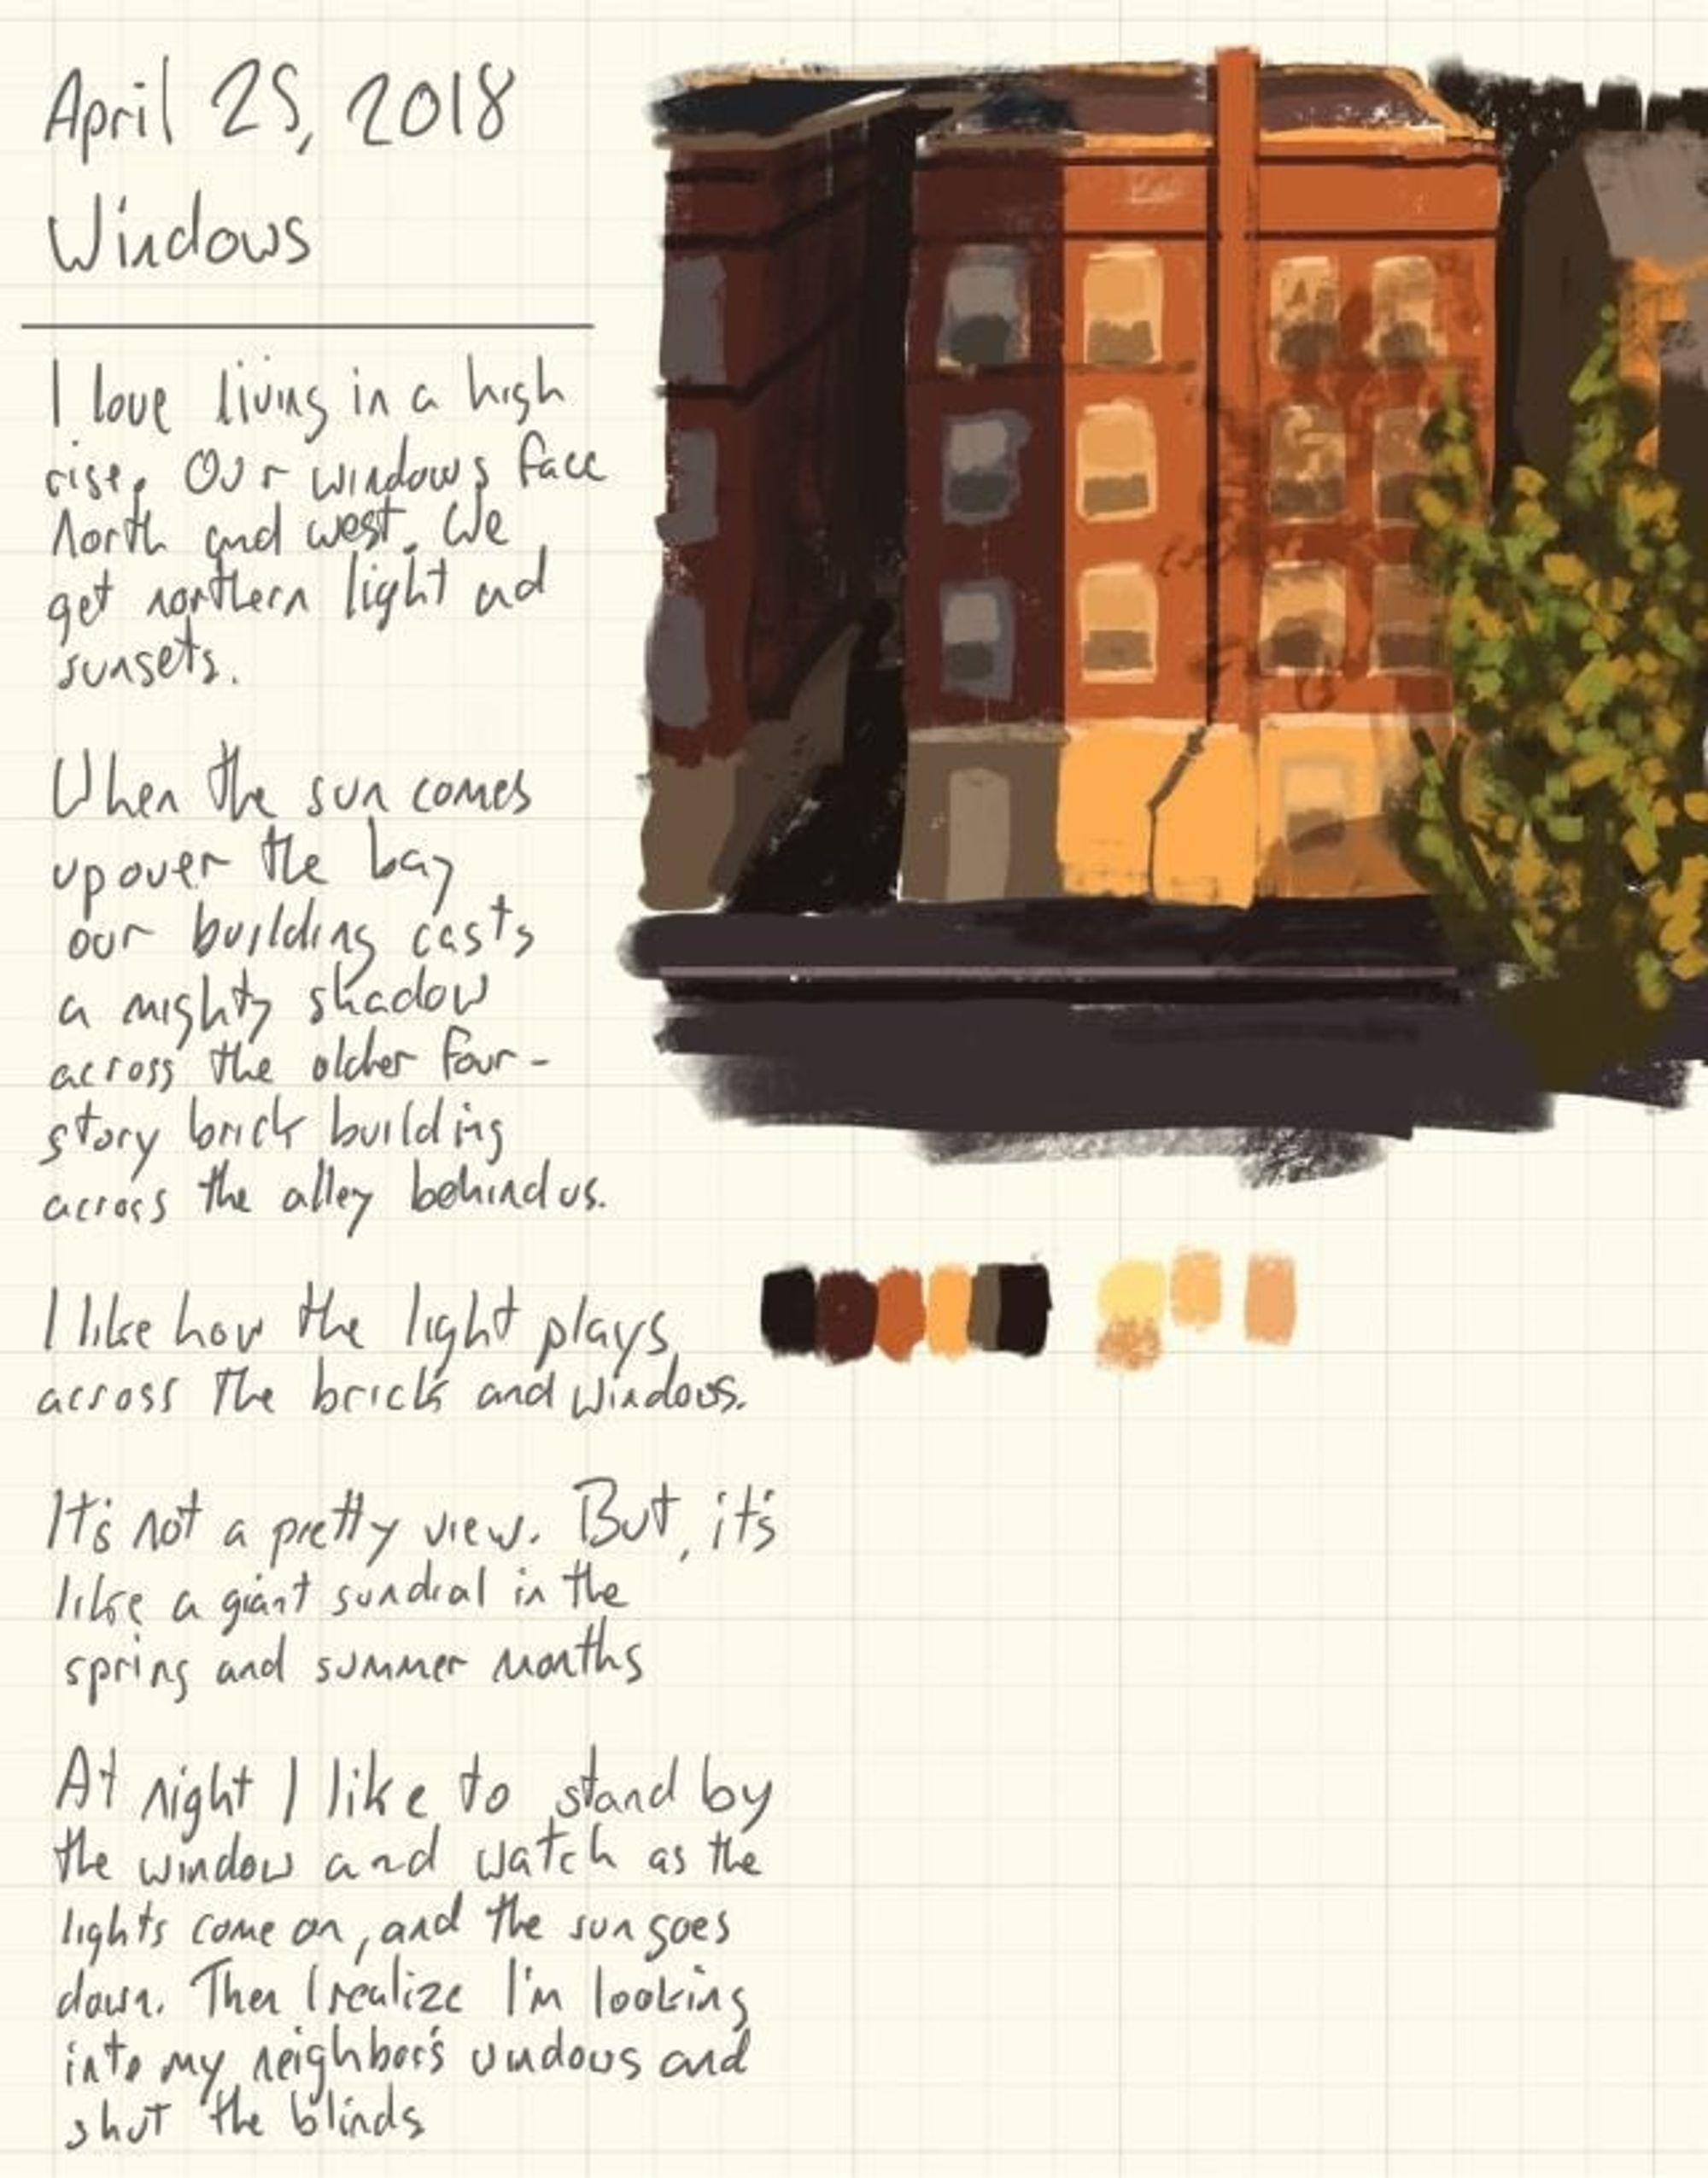 April 25, 2018
Windows
I love living in a high
rise. Our windows face
North and west. We
get northern light and
sunsets.
When the sun comes
up over the bay
our building casts
a mighty shadow
across the older four-
story brick building
across the alley behind us.
I like how the light plays
across the brick and windows.
It's not a pretty view. But, it's
like a giant sundial in the
spring and summer months
At night I like to stand by
the window and watch as the
lights come on, and the sun goes
down. Then I realize I'm looking
into my neighbor's windows and
shut the blinds